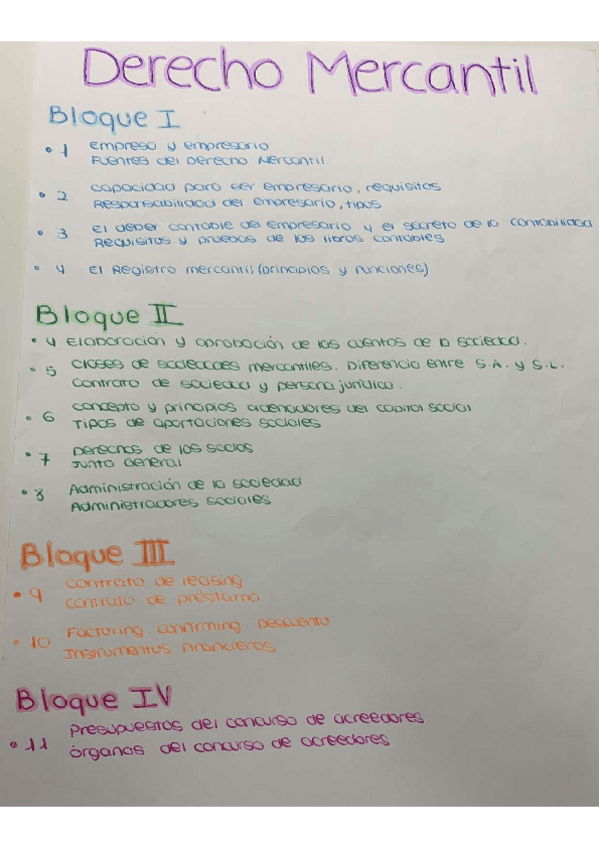 Derecho Mercantil
Bloque I
• 1 Empresa y empresario
Fuentes del Derecho Mercantil
• 2 capacidad para ser empresario, requisitos
Responsabilidad del empresario, tipos
• 3 El deber contable del empresario y el secreto de la contabilidad
Requisitos y pruebas de los libros contables
• 4 El Registro mercantil (principios y funciones)
Bloque II
• 4 Elaboración y aprobación de las cuentas de la sociedad.
• 5 Clases de sociedades mercantiles. Diferencia entre S.A. y S.L.
Contrato de sociedad y persona jurídica.
• 6 concepto y principios ordenadores del capital social
Tipos de aportaciones sociales
• 7 Derechos de los socios
Junta General
• 8 Administración de la sociedad
Administradores sociales
Bloque III
• 9 contrato de leasing
contrato de préstamo
• 10 Factoring. confirming. Descuento
Instrumentos financieros
Bloque IV
• 11 Presupuestos del concurso de acreedores
órganos del concurso de acreedores